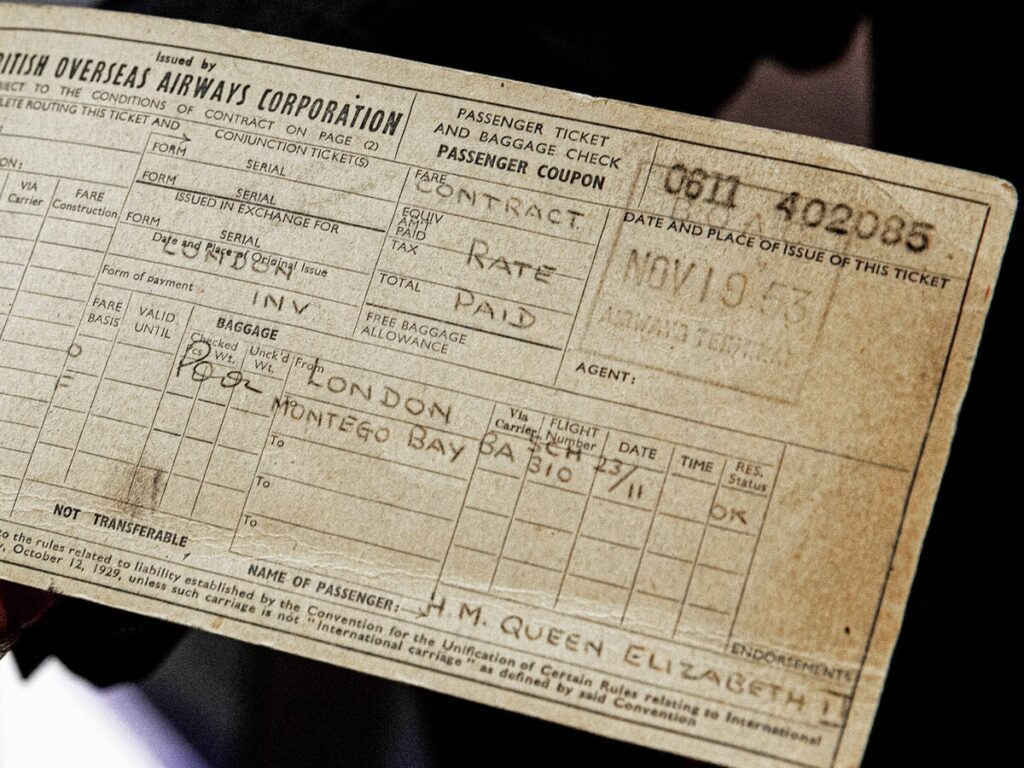 Issued by
RITISH OVERSEAS AIRWAYS CORPORATION
JECT TO THE CONDITIONS OF CONTRACT ON PAGE (2)
LETE ROUTING THIS TICKET AND CONJUNCTION TICKET(S)
PASSENGER TICKET
AND BAGGAGE CHECK
PASSENGER COUPON
0611 402085
DATE AND PLACE OF ISSUE OF THIS TICKET
NOV 19 53
AIRWAYS
AGENT:
ON:
VIA Carrier
FARE Construction
FORM SERIAL
FORM SERIAL
ISSUED IN EXCHANGE FOR
FORM SERIAL
Date and Place of Original Issue
LONDON
Form of payment
INV
FARE
CONTRACT
EQUIV AMT PAID
TAX
RATE
TOTAL
PAID
FREE BAGGAGE ALLOWANCE
FARE BASIS
VALID UNTIL
BAGGAGE
Checked Unck'd
Pcs Wt. Wt.
From
LONDON
Via Carrier
FLIGHT Number
DATE
TIME
RES. Status
O
F
POOL
To
MONTEGO BAY BA SCH 310 23/11 OK
To
To
To
NOT TRANSFERABLE
NAME OF PASSENGER:
H.M. QUEEN ELIZABETH II
ENDORSEMENTS
to the rules related to liability established by the Convention for the Unification of Certain Rules relating to International
, October 12, 1929, unless such carriage is not "International carriage" as defined by said Convention